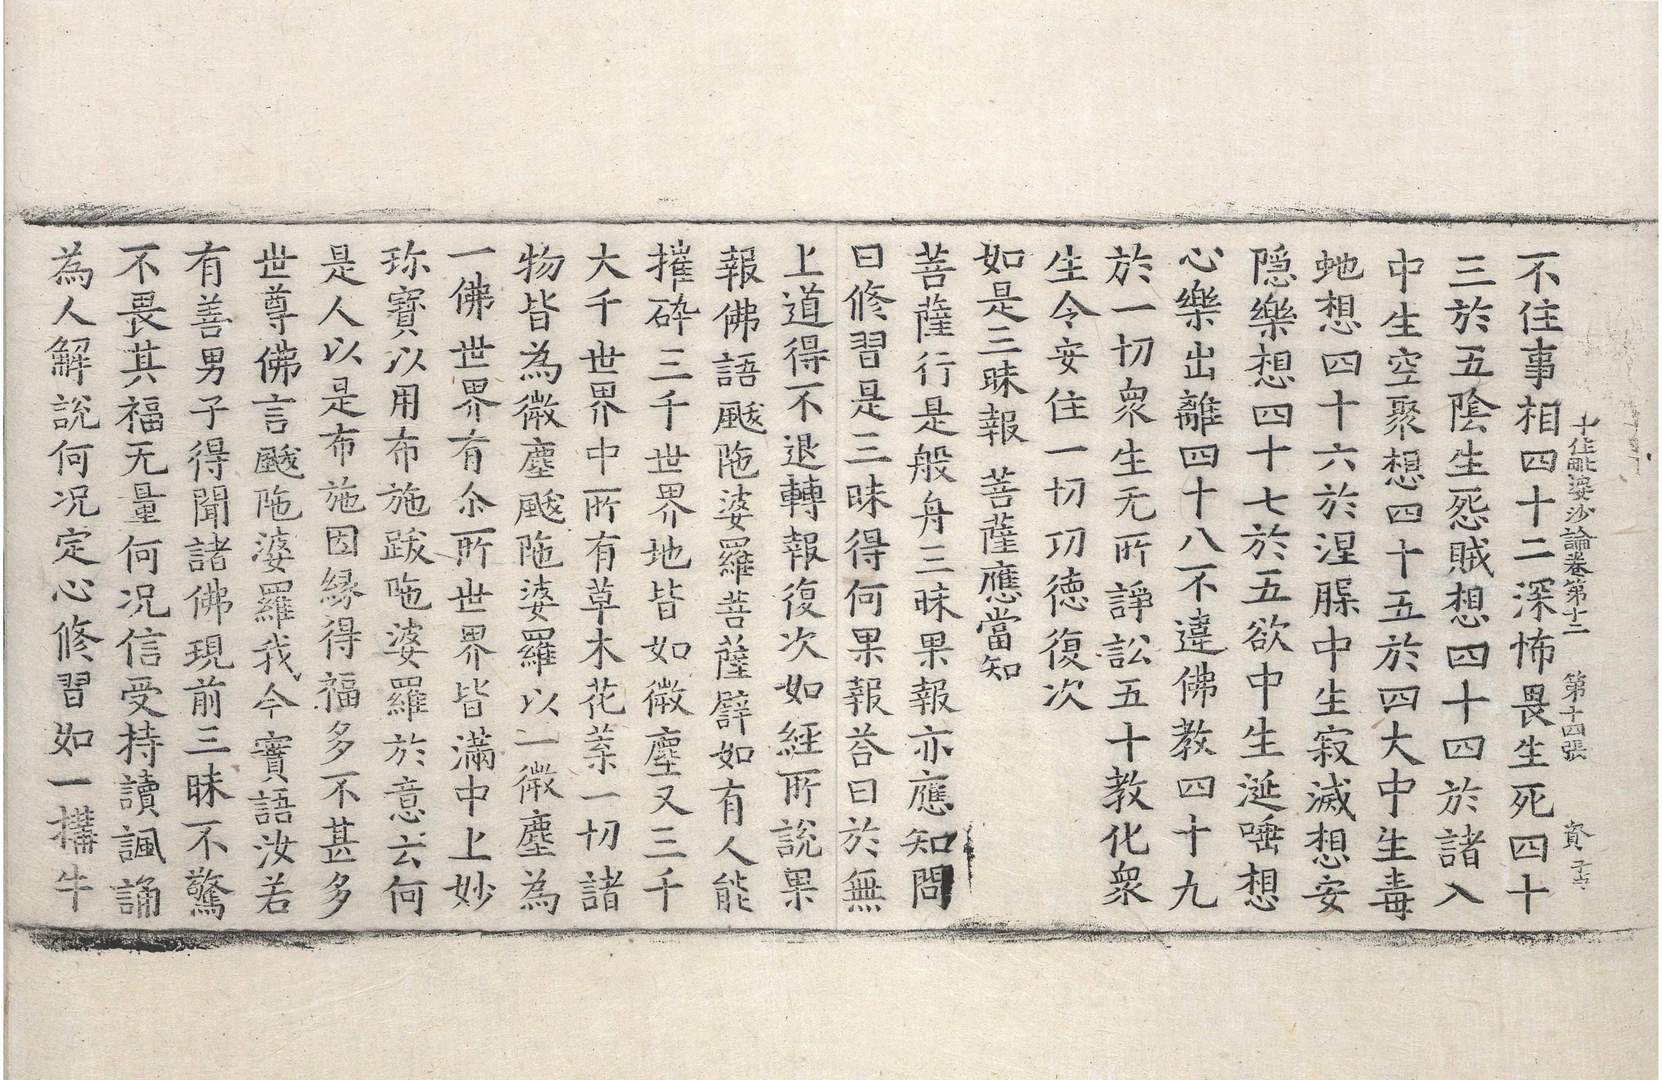 十住毗婆沙論卷第十二　第十四張　資
不住事相四十二深怖畏生死四十
三於五陰生怨賊想四十四於諸入
中生空聚想四十五於四大中生毒
虵想四十六於涅槃中生寂滅想安
隱樂想四十七於五欲中生涎唾想
心樂出離四十八不違佛教四十九
於一切衆生无所諍訟五十教化衆
生令安住一切功德復次
如是三昧報　菩薩應當知
菩薩行是般舟三昧果報亦應知問
曰修習是三昧得何果報荅曰於無
上道得不退轉報復次如經所說果
報佛語颰陁婆羅菩薩譬如有人能
摧碎三千世界地皆如微塵又三千
大千世界中所有草木花葉一切諸
物皆為微塵颰陁婆羅以一微塵為
一佛世界有尒所世界皆滿中上妙
珎寶以用布施跋陁婆羅於意云何
是人以是布施因緣得福多不甚多
世尊佛言颰陁婆羅我今實語汝若
有善男子得聞諸佛現前三昧不驚
不畏其福无量何况信受持讀諷誦
為人解說何况定心修習如一搆牛